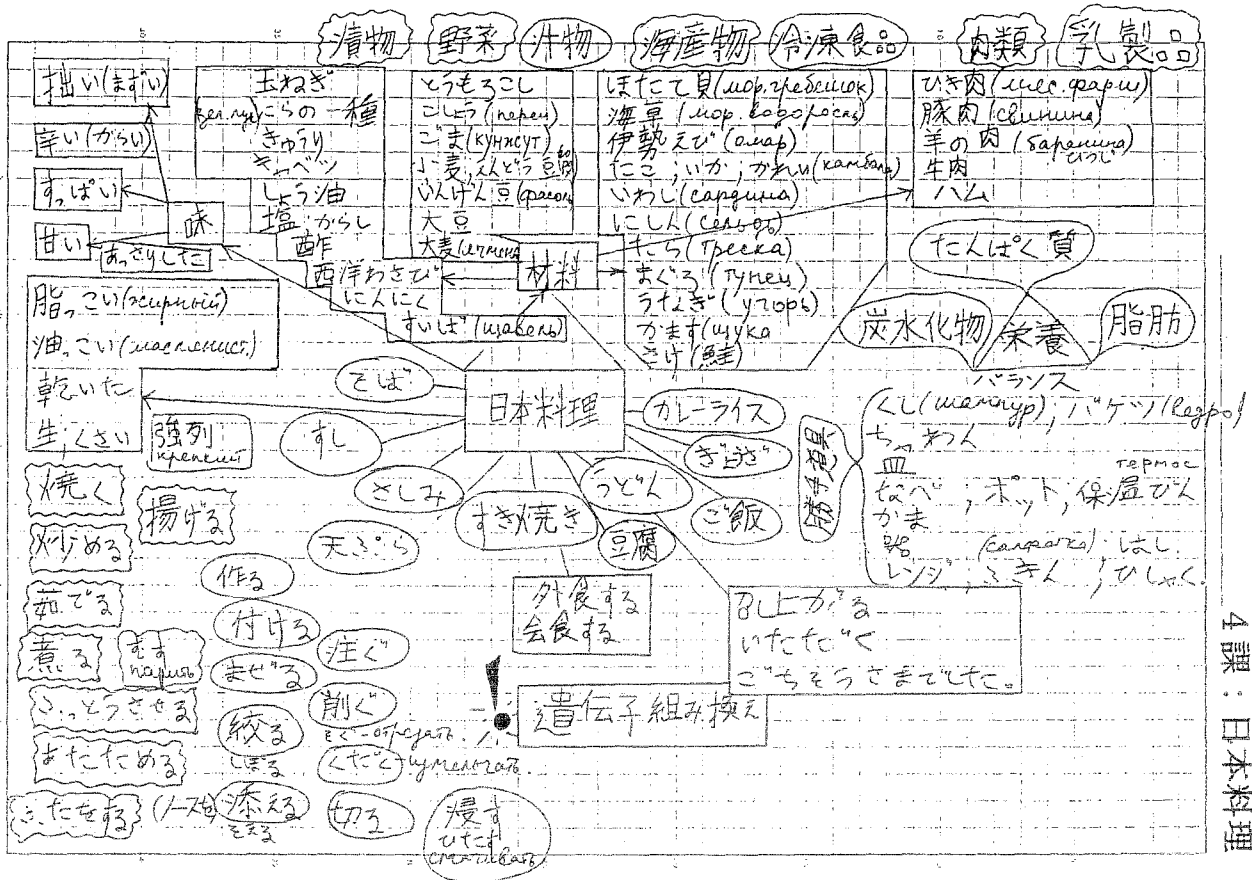 漬物 野菜 汁物 海産物 冷凍食品 肉類 乳製品
拙い(まずい)
辛い(からい)
すっぱい
甘い
味
あっさりした
玉ねぎ
にらの一種
きゅうり
キャベツ
しょう油
塩、からし
酢
西洋わさび
にんにく
すいば(щавель)
とうもろこし
こしょう(перец)
ごま(кунжут)
小麦;えんどう豆
いんげん豆(фасоль
大豆
大麦(ячмень
材料
ほたて貝(мор.гребешок)
海草(мор.водоросль)
伊勢えび(омар)
たこ;いか;かれい(камбала)
いわし(сардина)
にしん(сельдь)
たら(треска)
まぐろ(тунец)
うなぎ(угорь)
かます(щука
さけ(鮭)
ひき肉(мяс.фарш)
豚肉(свинина)
羊の肉(баранина)
ひつじ
牛肉
ハム
たんぱく質
炭水化物
栄養
脂肪
バランス
脂っこい(жирный)
油っこい(маслянист.)
乾いた
生;くさい
強列
крепкий
日本料理
そば
すし
さしみ
天ぷら
すき焼き
豆腐
うどん
ご飯
ぎょうざ
カレーライス
勝手道具
くし(шампур);バケツ(ведро)
ちゃわん
皿
термос
なべ;ポット;保温びん
かま
(салфетка) はし
レンジ;ふきん;ひしゃく.
焼く
揚げる
炒める
茹でる
煮る
むす
парить
ふっとうさせる
あたためる
ふたをする
作る
付ける
まぜる
絞る
しぼる
(ソースを)添える
そえる
注ぐ
削ぐ
そぐ-отрезать.
くだく-измельчать.
切る
浸す
ひたす
смачивать
外食する
会食する
召上がる
いたたぐ
ごちそうさまでした。
! 遺伝子組み換え
4課:日本料理